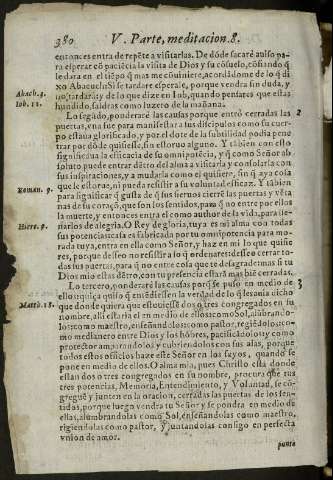 380 V. Parte, meditacion. 8.
entonces entra de repẽte a visitarlas. De dõde sacarè auiso pa-
ra esperar cõ paciẽcia la visita de Dios y su cõsuelo, cõfiando q̃
le dara en el tiẽpo q̃ mas me cõuiniere, acordãdome de lo q̃ di
Abach. 3. xo Abacuch: Si se tardare esperale, porque vendra sin duda, y
Iob. 11. no tardara: y de lo que dize en Iob, quando pensares que estas
hundido, saldras como luzero de la mañana.
Lo segũdo, ponderarè las causas porque entrò cerradas las 2
puertas, vna fue para manifestar a sus discipulos como su cuer-
po estaua glorificado, y por el dote de la subtilidad podia pene
trar por dõde quisiesse, sin estoruo alguno. Y tãbien con esto
significaua la eficacia de su omnipotẽcia, y q̃ como Señor ab
soluto puede entrar dẽtro del alma a visitarla y consolarla con
sus inspiraciones, y a mudarla como el quisiere, sin q̃ aya cosa
que le estorue, ni pueda resistir a su voluntad eficaz. Y tãbien
Roman. 9. para significar q̃ gusta de q̃ sus sieruos cierrẽ las puertas y vẽta
nas de su coraçõ, que son los sentidos, para q̃ no entre por ellos
la muerte, y entonces entra el como author de la vida, para lle-
Hiere. 9. narlos de alegria. O Rey de gloria, tuya es mi alma con todas
sus potencias: casa es fabricada por tu omnipotencia para mo-
rada tuya, entra en ella como Señor, y haz en mi lo que quisie
res, porque desseo no resistir a lo q̃ ordenares: desseo cerrar to-
das sus puertas, para q̃ no entre cola que te desagrade: mas si tu
Dios mio estas dẽtro, con tu presencia estarã mas biẽ cerradas.
Lo tercero, ponderarè las causas porq̃ se puso en medio de 3
ellos: quiça quiso q̃ entẽdiessen la verdad de lo q̃ les auia dicho
Matth. 18. que donde quiera que estuuiessẽ dos o tres congregados en su
nombre, alli estaria el en medio de ellos: como Sol, alũbrando-
los: como maestro, enseñandolos: como pastor, rigiẽdolos: co-
mo medianero entre Dios y los hõbres, pacificãdolos: y como
protector amparandolos y cubriendolos con sus alas, porque
todos estos oficios haze este Señor en los suyos, quando se
pone en medio de ellos. O alma mia, pues Christo està donde
estan dos o tres congregados en su nombre, procura que tus
tres potencias, Memoria, Entendimiento, y Voluntad, se cõ-
greguẽ y junten en la oracion, cerradas las puertas de los sen-
tidos, porque luego vendra tu Señor y se pondra en medio de
ellas, alumbrandolas como Sol, enseñandolas como maestro,
rigiendolas como pastor, y juntandolas consigo en perfecta
vnion de amor.
punto